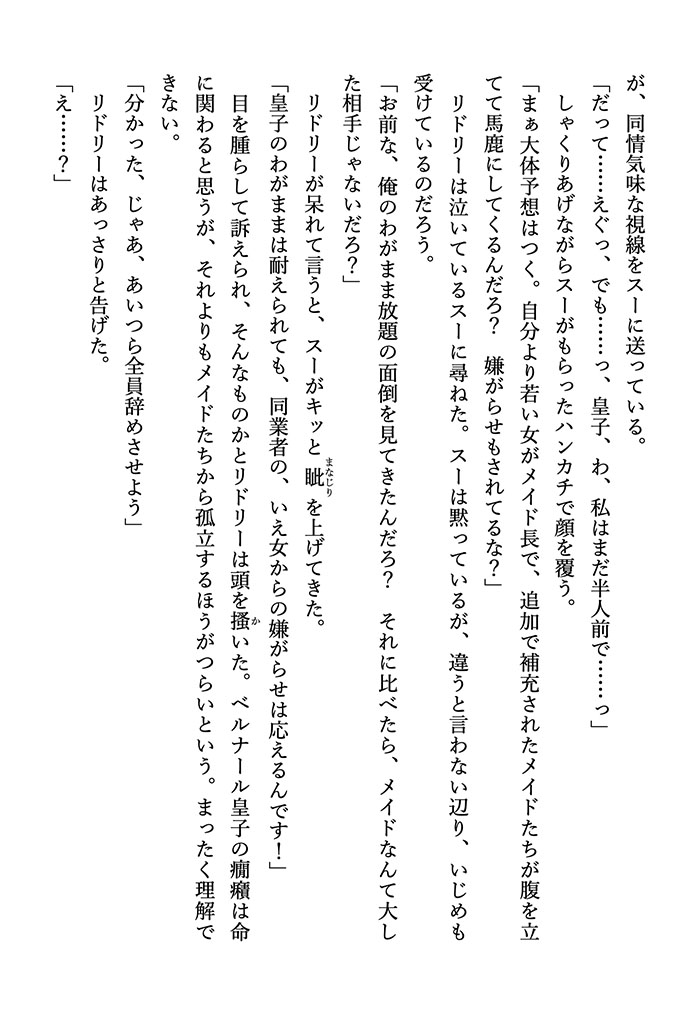 が、同情気味な視線をスーに送っている。
「だって……えぐっ、でも……っ、皇子、わ、私はまだ半人前で……っ」
しゃくりあげながらスーがもらったハンカチで顔を覆う。
「まぁ大体予想はつく。自分より若い女がメイド長で、追加で補充されたメイドたちが腹を立
てて馬鹿にしてくるんだろ？　嫌がらせもされてるな？」
リドリーは泣いているスーに尋ねた。スーは黙っているが、違うと言わない辺り、いじめも
受けているのだろう。
「お前な、俺のわがまま放題の面倒を見てきたんだろ？　それに比べたら、メイドなんて大し
た相手じゃないだろ？」
リドリーが呆れて言うと、スーがキッと眦まなじりを上げてきた。
「皇子のわがままは耐えられても、同業者の、いえ女からの嫌がらせは応えるんです！」
目を腫らして訴えられ、そんなものかとリドリーは頭を掻かいた。ベルナール皇子の癇癪は命
に関わると思うが、それよりもメイドたちから孤立するほうがつらいという。まったく理解で
きない。
「分かった、じゃあ、あいつら全員辞めさせよう」
リドリーはあっさりと告げた。
「え……？」